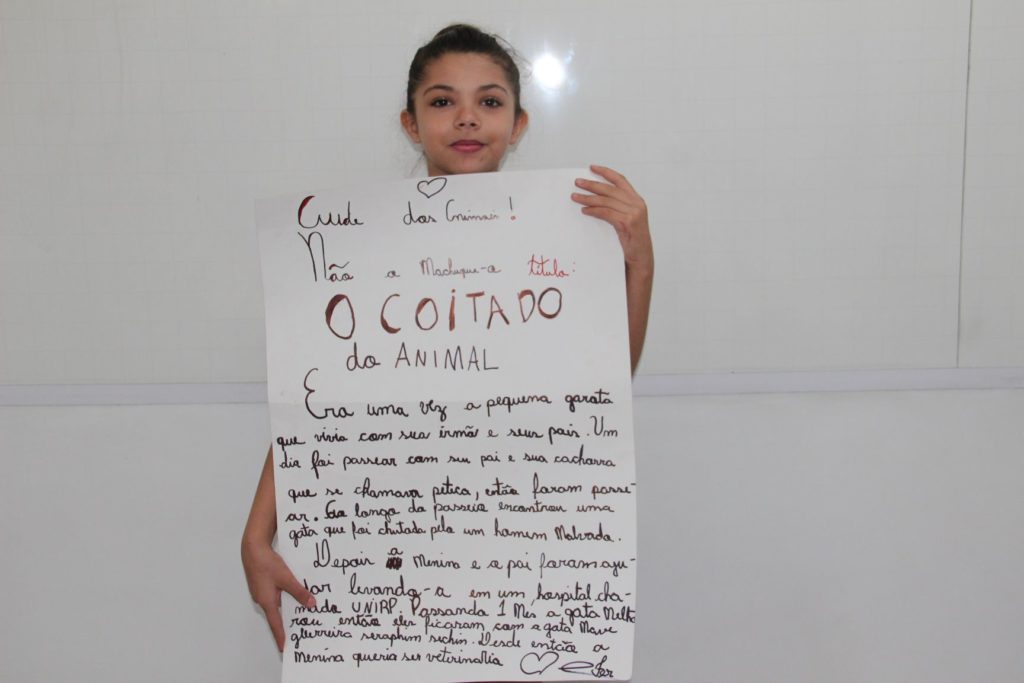 Cuide dos Animais!
Não a Machuque-a título:
O COITADO
do ANIMAL
Era uma vez a pequena garata
que vivia com sua irmã e seus pais. Um
dia foi passear com seu pai e sua cachorra
que se chamava petica, então foram passe-
ar. Ao longo do passeio encontrou uma
gata que foi chutada pela um homem Malvado.
Depois a Menina e o pai foram aju-
dar levando-a em um hospital cha-
mado UNIRP. Passando 1 Mês a gata Melho
rou então eles ficaram com a gata
guerreira seraphim. Desde então a
Menina queria ser veterinaria